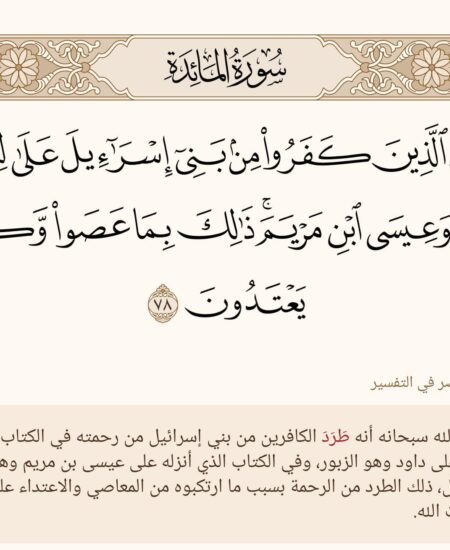 سُورَةُ المَائِدَةِ
ٱلَّذِينَ كَفَرُواْ مِنۢ بَنِيٓ إِسۡرَٰٓءِيلَ عَلَىٰ
وَعِيسَى ٱبۡنِ مَرۡيَمَۚ ذَٰلِكَ بِمَا عَصَواْ وَّ
يَعۡتَدُونَ ٧٨
في التفسير
لله سبحانه أنه طَرَدَ الكافرين من بني إسرائيل من رحمته في الكتاب
داود وهو الزبور، وفي الكتاب الذي أنزله على عيسى بن مريم
ذلك الطرد من الرحمة بسبب ما ارتكبوه من المعاصي والاعتداء
الله.